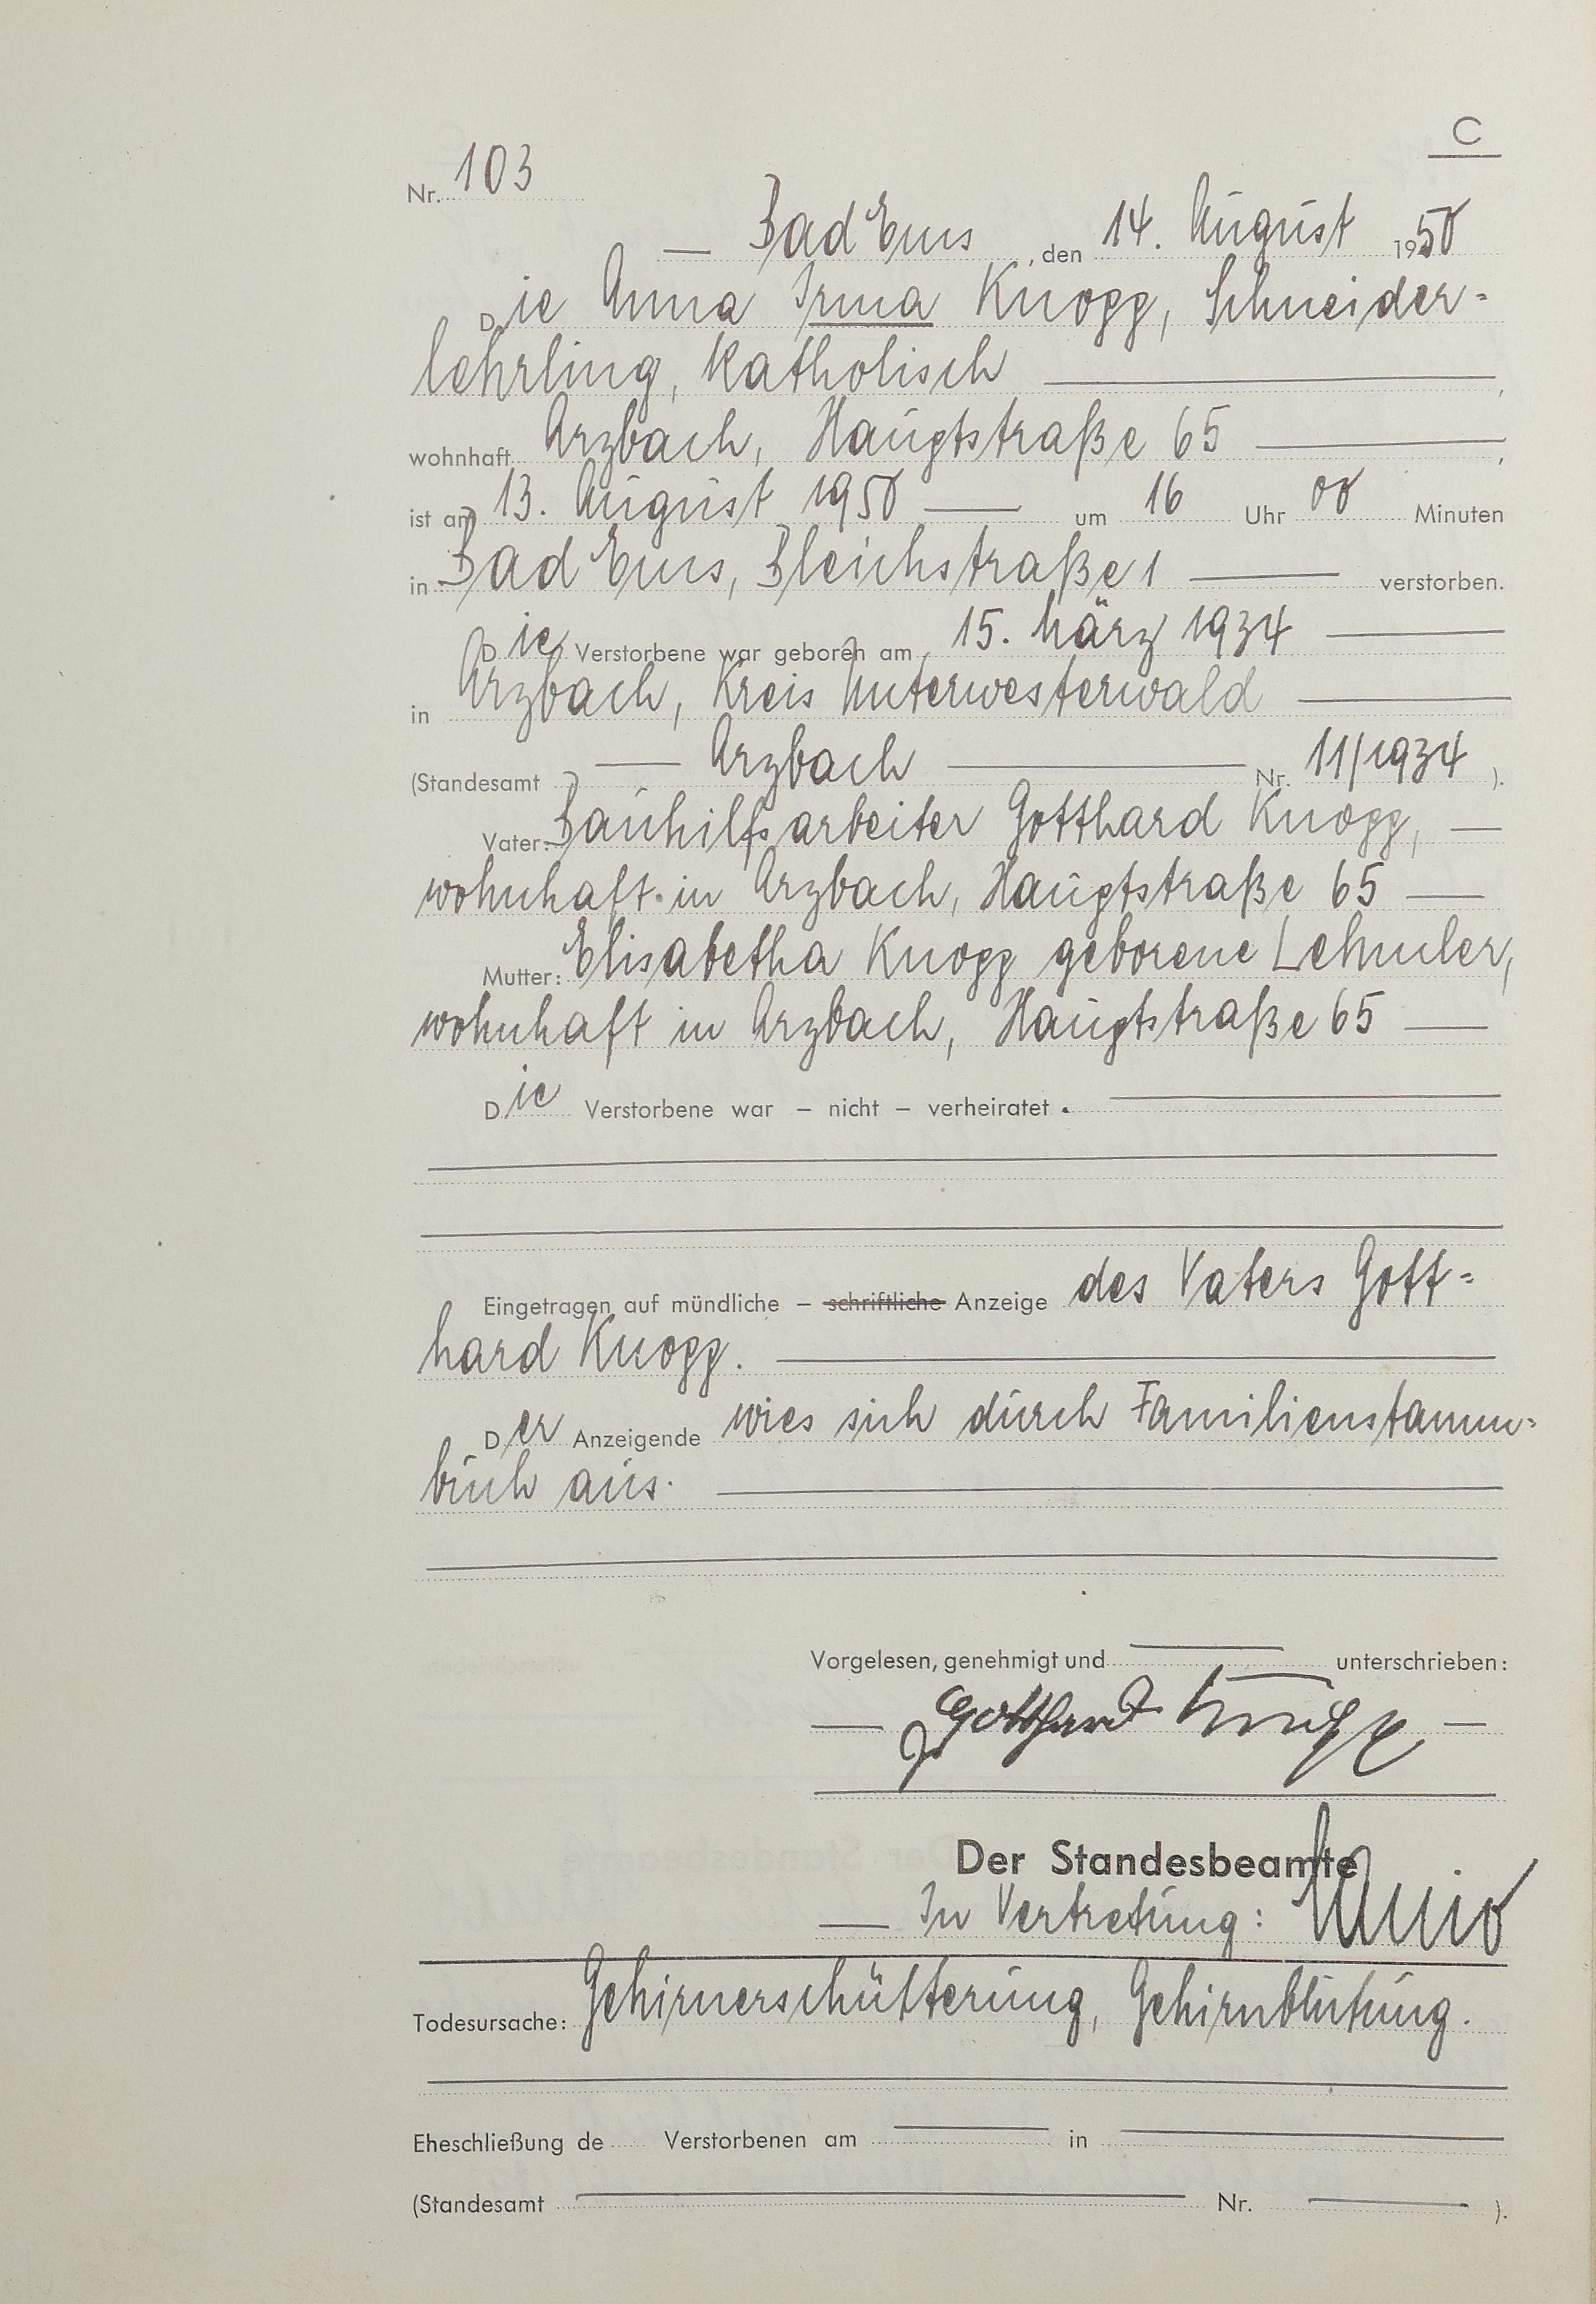 C
Nr. 103
— Bad Ems, den 14. August 1950
Die Anna Irma Knopp, Schneider-
lehrling, katholisch —,
wohnhaft Arzbach, Hauptstraße 65 —,
ist am 13. August 1950 — um 16 Uhr 00 Minuten
in Bad Ems, Bleichstraße 1 — verstorben.
Die Verstorbene war geboren am 15. März 1934 —
in Arzbach, Kreis Unterwesterwald —
(Standesamt — Arzbach — Nr. 11/1934 ).
Vater: Bauhilfsarbeiter Gotthard Knopp, —
wohnhaft in Arzbach, Hauptstraße 65 —
Mutter: Elisabetha Knopp geborene Lehmler,
wohnhaft in Arzbach, Hauptstraße 65 —
Die Verstorbene war – nicht – verheiratet. —
Eingetragen auf mündliche – schriftliche Anzeige des Vaters Gott-
hard Knopp. —
Der Anzeigende wies sich durch Familienstamm-
buch aus. —
Vorgelesen, genehmigt und — unterschrieben:
— Gotthard Knopp —
Der Standesbeamte
— In Vertretung:
Todesursache: Gehirnerschütterung, Gehirnblutung.
Eheschließung de Verstorbenen am — in —
(Standesamt — Nr. — ).